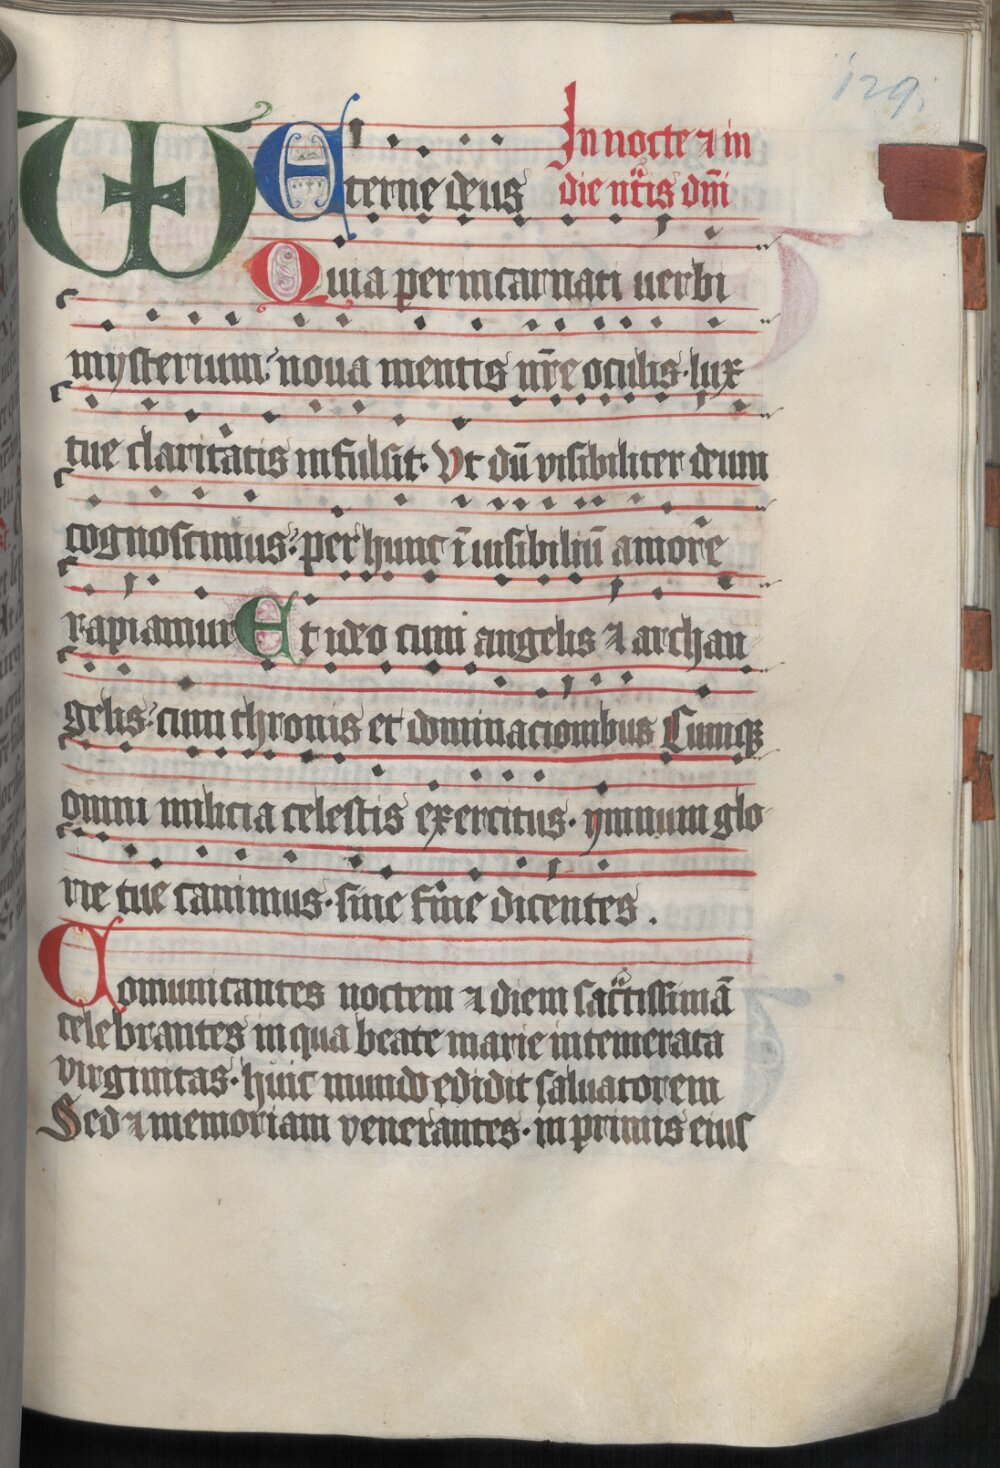 129.
In nocte ⁊ in
Eterne deus die nr̃is dm̃i
Quia per incarnati uerbi
mysterium. noua mentis nr̃e oculis. lux
tue claritatis infulsit. Vt dū visibiliter deum
cognoscimus. per hunc ī iusibiliū amore
rapiamur Et ideo cum angelis ⁊ archan
gelis. cum thronis et dominacionibus Cumqꝫ
omni milicia celestis exercitus. ymnum glo
rie tue canimus. sine fine dicentes.
Comunicantes noctem ⁊ diem sacr̃tissimā
celebrantes in qua beate marie intemerata
virginitas. huic mundo edidit saluatorem
Sed ⁊ memoriam venerantes. in primis eius